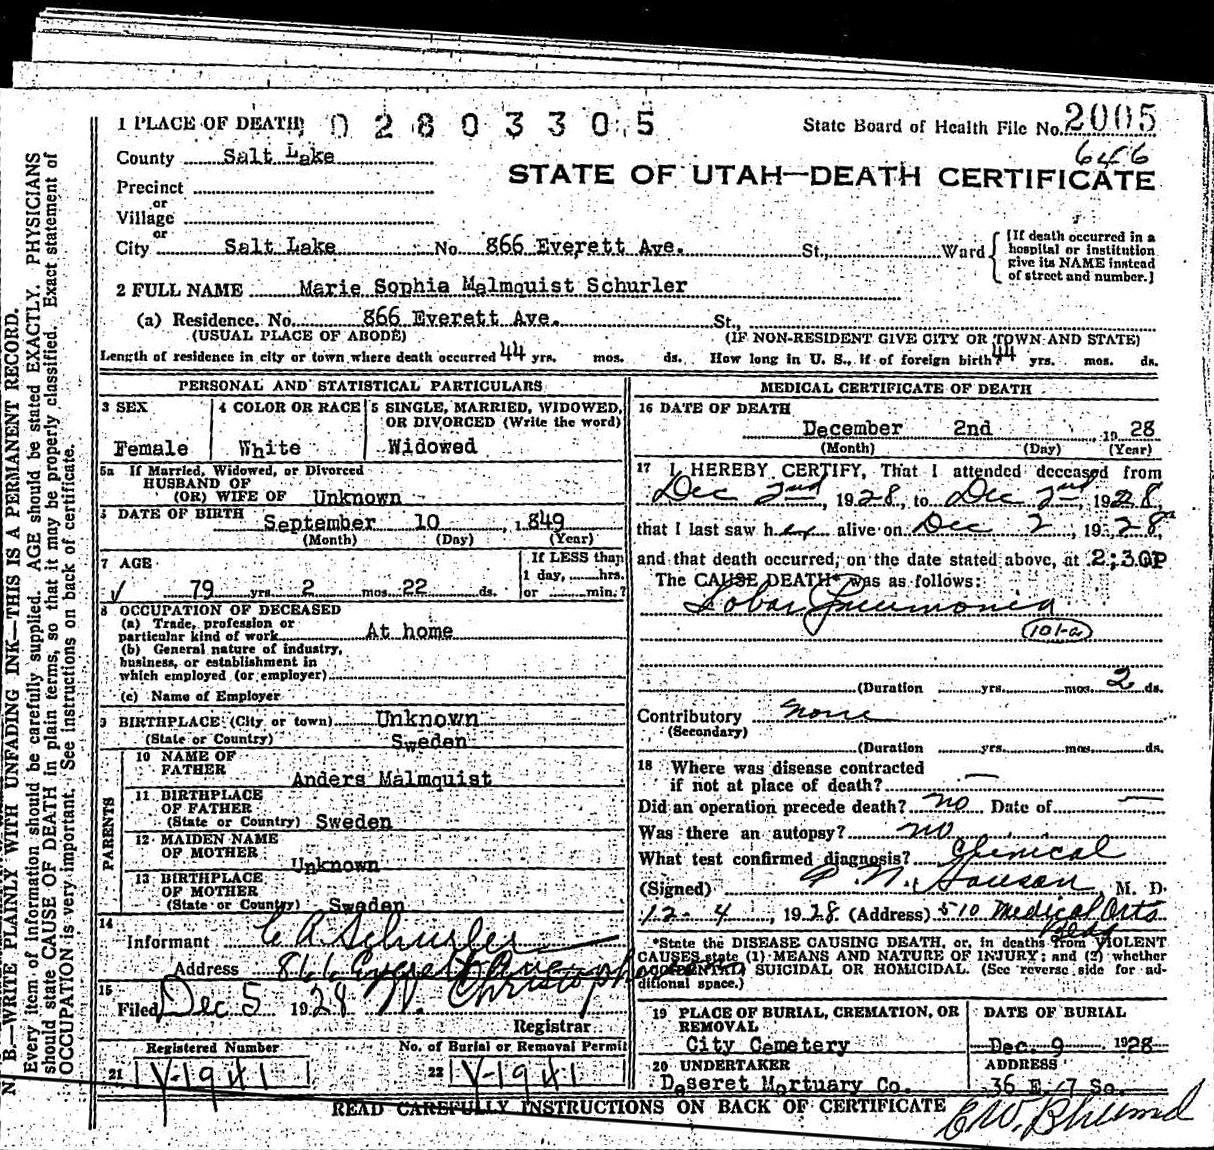 2005
1 PLACE OF DEATH 0 2 8 0 3 3 0 5 State Board of Health File No.
646
County Salt Lake
STATE OF UTAH—DEATH CERTIFICATE
Precinct
or
Village
or
City Salt Lake No. 866 Everett Ave. St., Ward
[If death occurred in a
hospital or institution
give its NAME instead
of street and number.]
2 FULL NAME Marie Sophia Malmquist Schurler
(a) Residence. No. 866 Everett Ave. St.,
(USUAL PLACE OF ABODE) (IF NON-RESIDENT GIVE CITY OR TOWN AND STATE)
Length of residence in city or town where death occurred 44 yrs. mos. ds. How long in U. S., if of foreign birth? 44 yrs. mos. ds.
PERSONAL AND STATISTICAL PARTICULARS
3 SEX
Female
4 COLOR OR RACE
White
5 SINGLE, MARRIED, WIDOWED,
OR DIVORCED (Write the word)
Widowed
5a If Married, Widowed, or Divorced
HUSBAND OF
(OR) WIFE OF Unknown
DATE OF BIRTH
September 10, 1849
(Month) (Day) (Year)
7 AGE
79 yrs. 2 mos. 22 ds.
If LESS than
1 day, hrs.
or min.?
8 OCCUPATION OF DECEASED
(a) Trade, profession or
particular kind of work At home
(b) General nature of industry,
business, or establishment in
which employed (or employer)
(c) Name of Employer
9 BIRTHPLACE (City or town) Unknown
(State or Country) Sweden
PARENTS
10 NAME OF
FATHER
Anders Malmquist
11 BIRTHPLACE
OF FATHER
(State or Country) Sweden
12 MAIDEN NAME
OF MOTHER
Unknown
13 BIRTHPLACE
OF MOTHER
(State or Country) Sweden
14
Informant C A Schurler
Address 866 Everett Ave
15
Filed Dec 5 1928
Registrar
Registered Number No. of Burial or Removal Permit
21 V-1941 22 V-1941
MEDICAL CERTIFICATE OF DEATH
16 DATE OF DEATH
December 2nd, 1928
(Month) (Day) (Year)
17 I HEREBY CERTIFY, That I attended deceased from
Dec 2nd, 1928, to Dec 2nd, 1928,
that I last saw her alive on Dec 2, 1928,
and that death occurred, on the date stated above, at 2:30P
The CAUSE DEATH* was as follows:
Lobar Pneumonia
101-a
(Duration yrs. mos. 2 ds.
Contributory None
(Secondary)
(Duration yrs. mos. ds.
18 Where was disease contracted
if not at place of death? —
Did an operation precede death? no Date of —
Was there an autopsy? no
What test confirmed diagnosis? Clinical
(Signed) M. D.
12-4, 1928 (Address) 510 Medical Arts
Bldg
*State the DISEASE CAUSING DEATH, or, in deaths from VIOLENT
CAUSES state (1) MEANS AND NATURE OF INJURY; and (2) whether
ACCIDENTAL, SUICIDAL OR HOMICIDAL. (See reverse side for ad-
ditional space.)
19 PLACE OF BURIAL, CREMATION, OR
REMOVAL
City Cemetery
DATE OF BURIAL
Dec. 9 1928
20 UNDERTAKER
Deseret Mortuary Co.
ADDRESS
36 E. 7 So.
READ CAREFULLY INSTRUCTIONS ON BACK OF CERTIFICATE
N. B.—WRITE PLAINLY WITH UNFADING INK—THIS IS A PERMANENT RECORD.
Every item of information should be carefully supplied. AGE should be stated EXACTLY. PHYSICIANS
should state CAUSE OF DEATH in plain terms, so that it may be properly classified. Exact statement of
OCCUPATION is very important. See instructions on back of certificate.